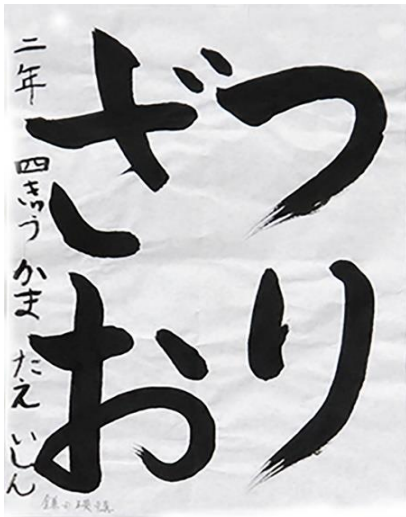 つり
ざお
二年 四きゅう かま たえ いしん